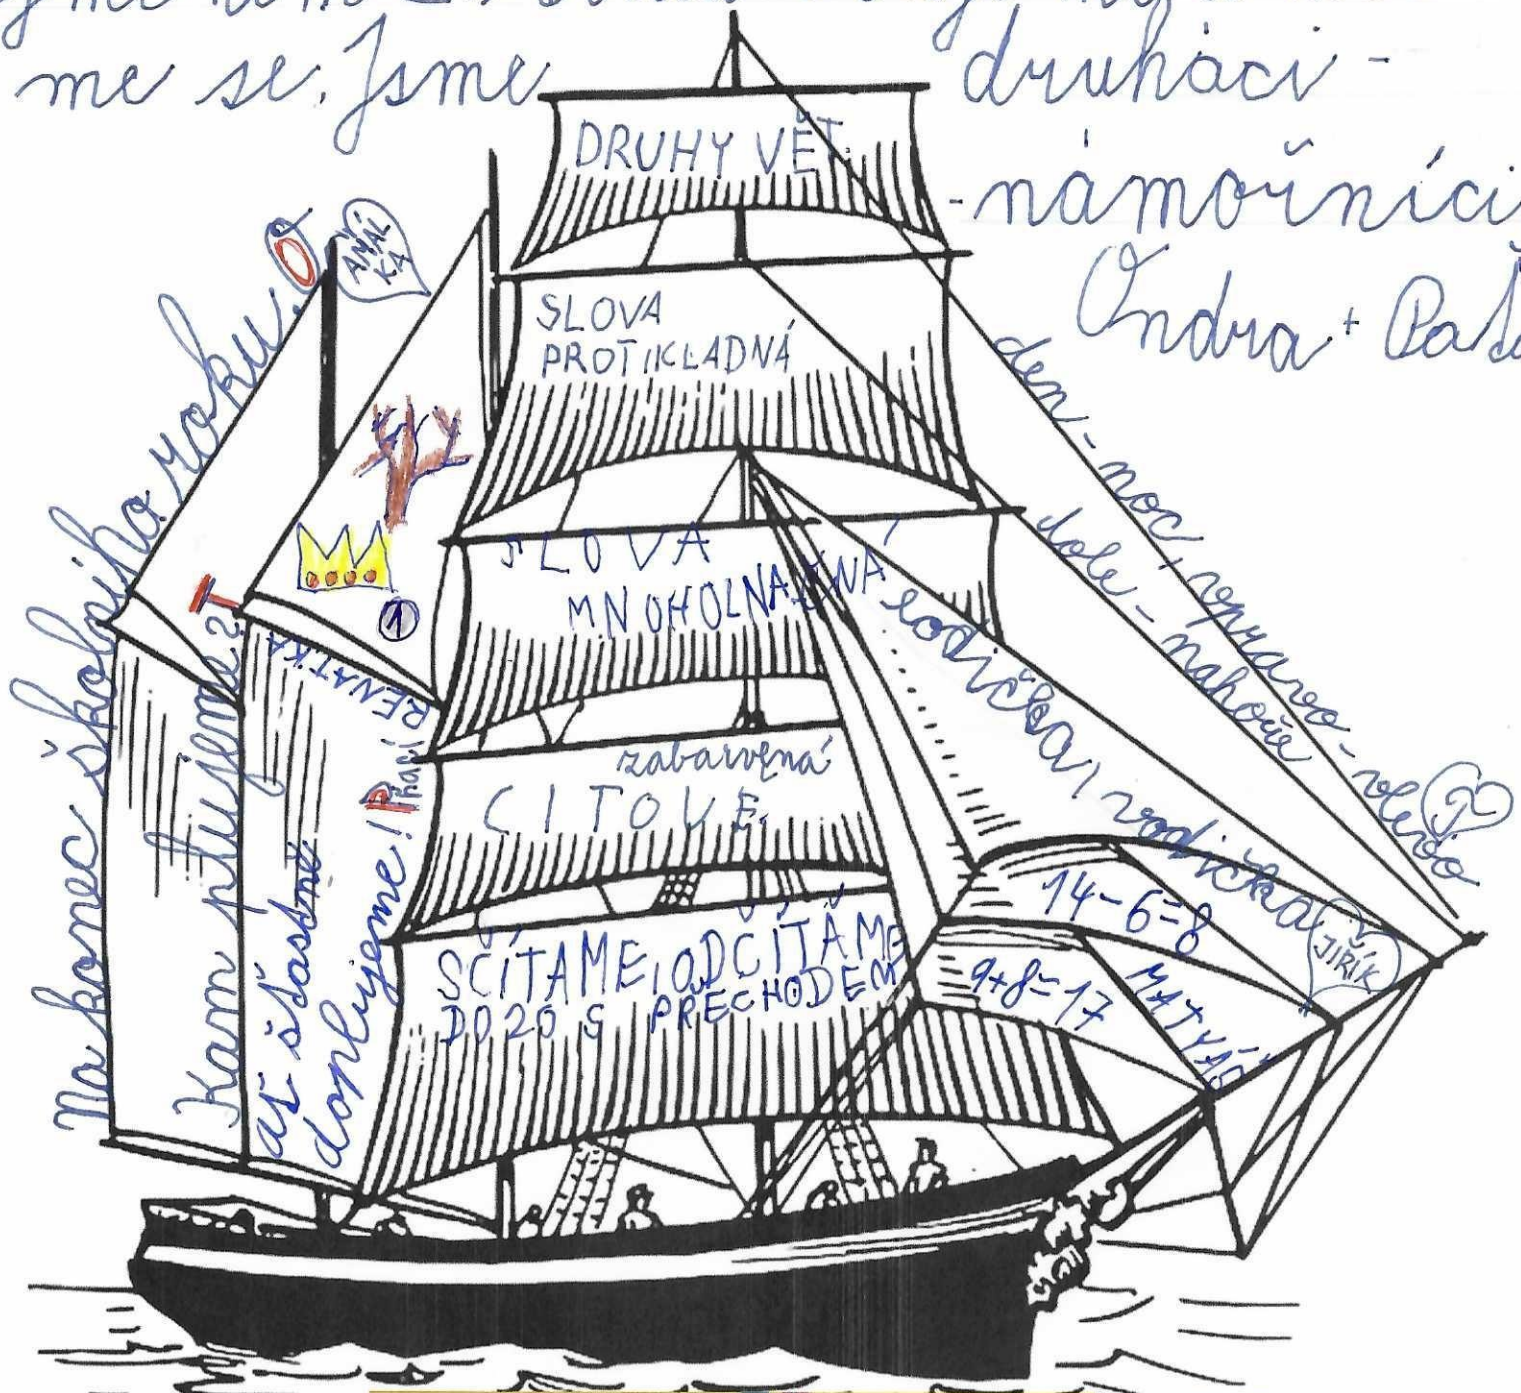 me se. Jsme druháci -
- námořníci
Ondra + Pa
DRUHY VĚT
SLOVA
PROTIKLADNÁ
SLOVA
MNOHOLNAČNÁ
zabarvená
CITOVĚ
SČÍTÁME, ODČÍTÁME
DO 20 S PŘECHODEM
Na konec školního roku. O
ANÁL
KA
Kam plujeme? T
RENATKA
1
ať šťastně
doplujeme! Přací
den - noc, vpravo - vlevo
dole - nahoře
lodička, vodička
14-6=8
9+8=17
MATYÁŠ
JIŘÍK